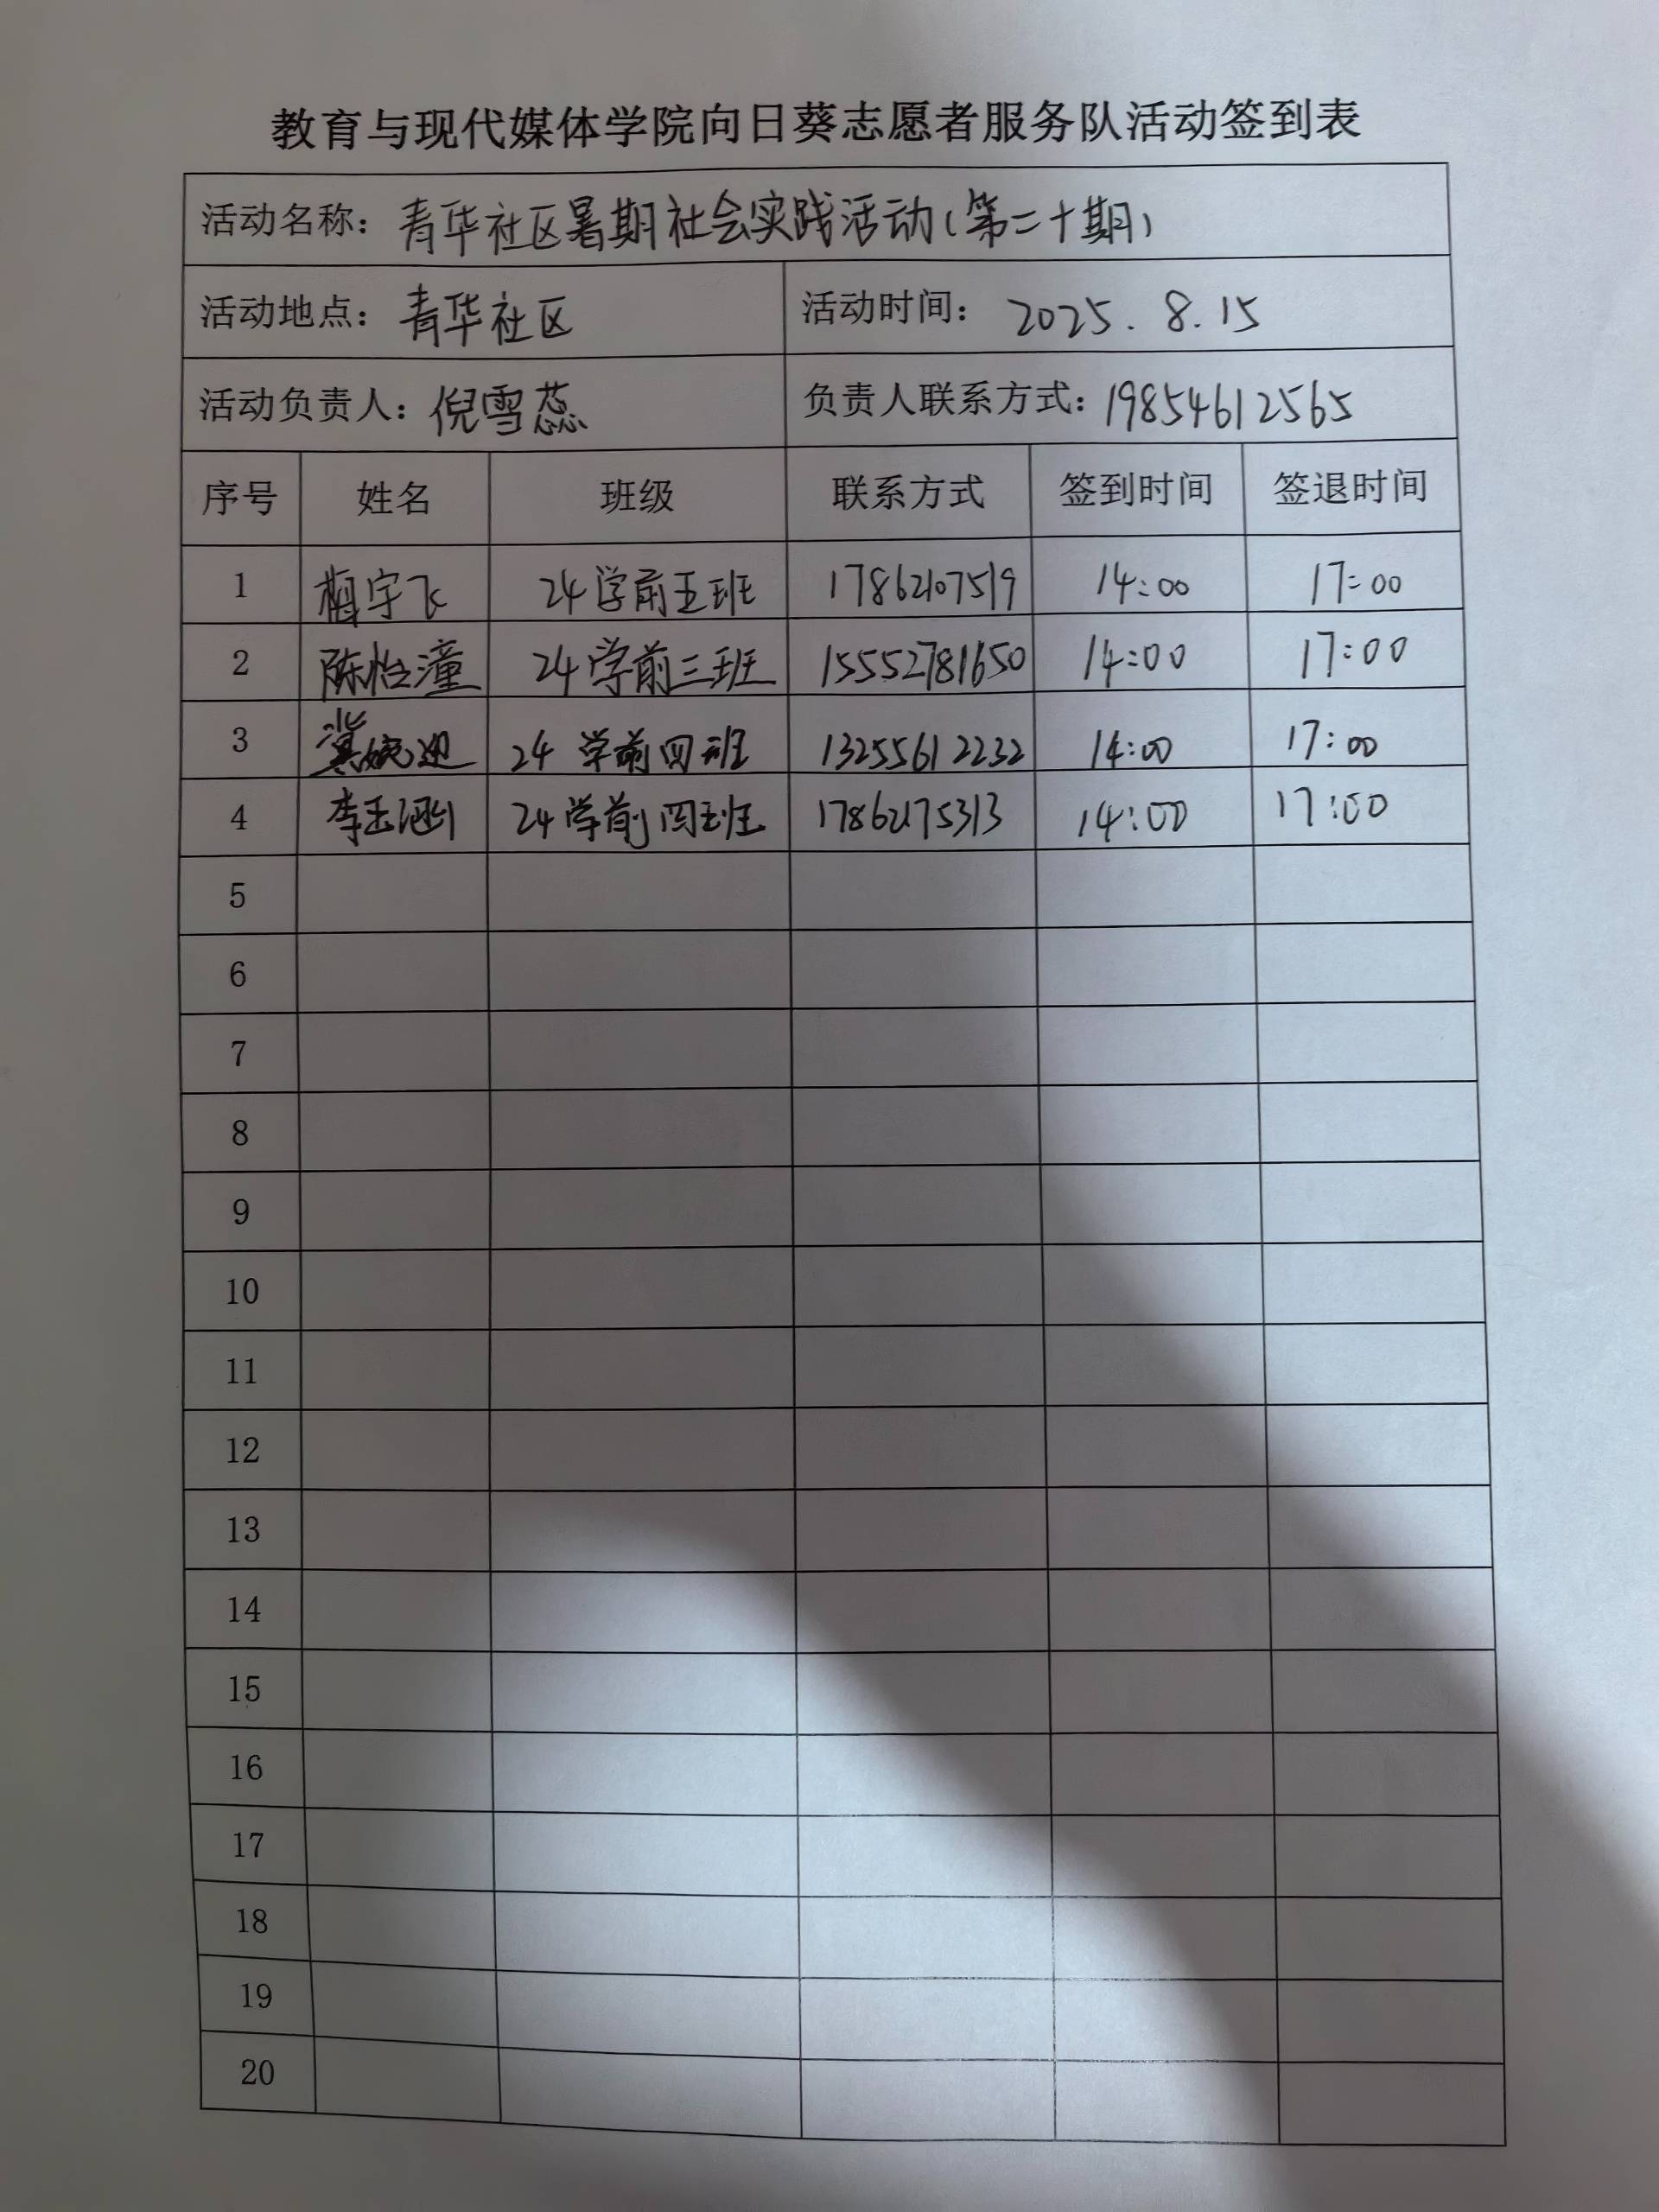 教育与现代媒体学院向日葵志愿者服务队活动签到表
活动名称：青华社区暑期社会实践活动（第二十期）
活动地点：青华社区 活动时间：2025.8.15
活动负责人：倪雪蕊 负责人联系方式：19854612565
序号 姓名 班级 联系方式 签到时间 签退时间
1 梅宇飞 24学前五班 17862107519 14:00 17:00
2 陈怡潼 24学前三班 15552781650 14:00 17:00
3 冀婉迎 24学前四班 13255612232 14:00 17:00
4 李玉涵 24学前四班 17862175313 14:00 17:00
5
6
7
8
9
10
11
12
13
14
15
16
17
18
19
20